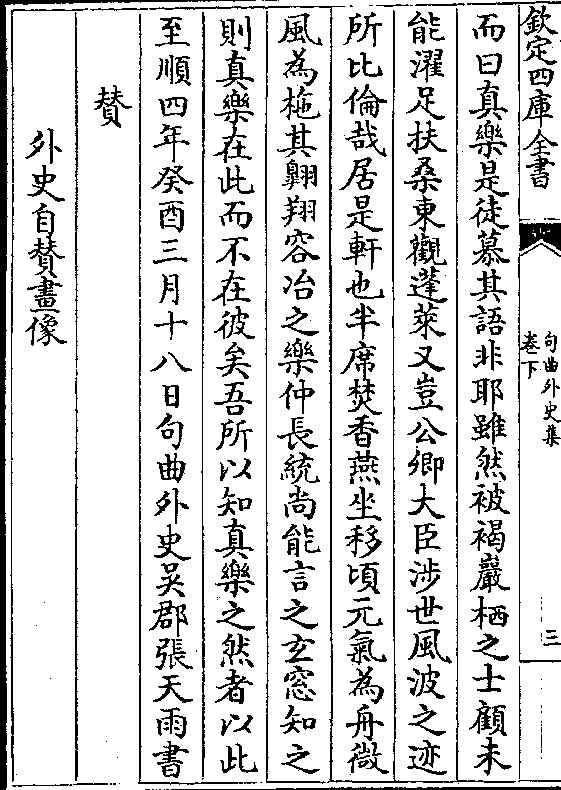 欽定四庫全書
句曲外史集
卷下
三
而曰真樂是徒慕其語非耶雖然被褐巖栖之士顧未
能濯足扶桑東觀蓬萊又豈公卿大臣涉世風波之迹
所比倫哉居是軒也半席焚香燕坐移頃元氣為舟微
風為柂其翺翔容冶之樂仲長統尚能言之玄窓知之
則真樂在此而不在彼矣吾所以知真樂之然者以此
至順四年癸酉三月十八日句曲外史吳郡張天雨書
贊
外史自贊畫像